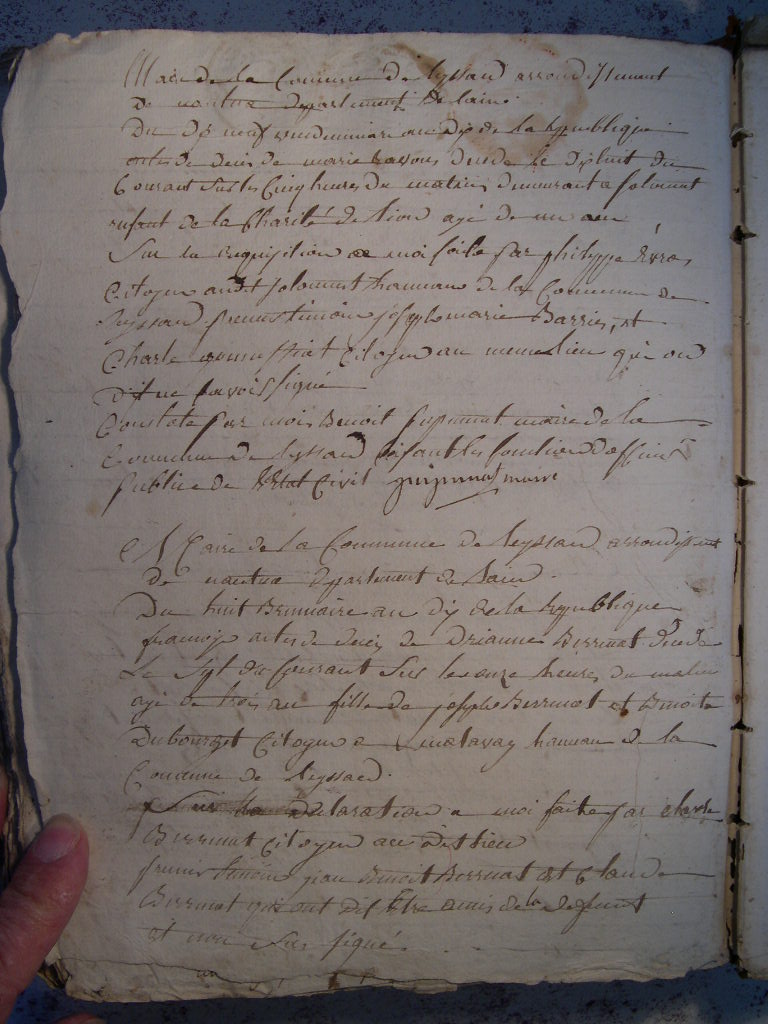 Maire de la Commune de leyssard arrondissement
de nantua departement de lain
Du dix neuf vendemiaire an dix de la republique
actes de deces de marie decede le dixhuit du
Courant sur les Cinq heures du matin demeurant a solomiat
enfant de la Charité de lion agé de un an
Sur la requisition a moi faite par philippe
Citoyen audit solomiat hameau de la Commune de
leyssard premier timoin josephe marie Barrier, et
Charle Citoyen au meme lieu qui on
dit ne savoir signé
Constaté par moi Benoit maire de la
Commune de leyssard faisant les fonctions dofficier
publice de l'Etat Civil maire
Maire de la Commune de leyssard arrondissement
de nantua departement de lain
Du huit Brumaire an dix de la republique
francoise actes de deces de Drianne Berrmat decede
Le sept du Courant sur les onze heures du matin
agé de trois an fille de josephe Berrmat et Benoite
Dubourget Citoyen a hameau de la
Commune de leyssard
Sur la declaration a moi faite par
Berrmat Citoyen au dit lieu
premier timoin jean Benoit Berrmat et Claude
Berrmat qui ont dit être amis de la defunt
et non sus signé